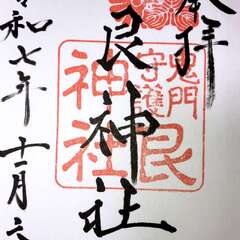 奉拝
鬼門
守護
艮
神社
艮神社
令和七年十一月六